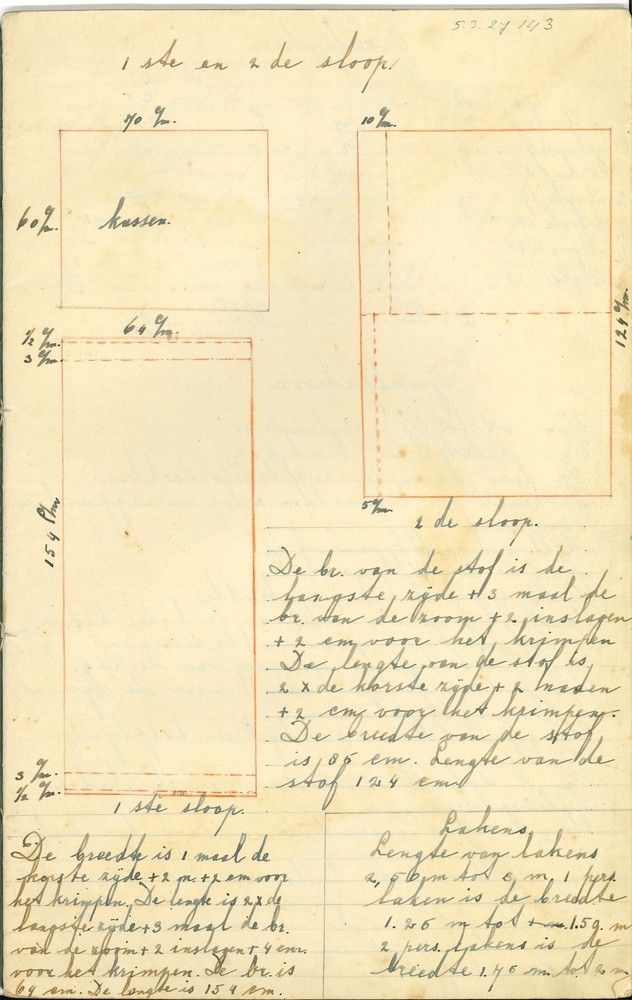 5.3.27 143
1 ste en 2 de sloop.
70 c/m.
60 c/m.
kussen.
64 c/m.
1/2 c/m.
3 c/m.
154 c/m
3 c/m.
1/2 c/m.
1 ste sloop.
10 c/m.
124 c/m.
5 c/m.
2 de sloop.
De br. van de stof is de
langste zijde + 3 maal de
br. van de zoom + 2 inslagen
+ 2 cm voor het krimpen
De lengte van de stof is
2 x de korste zijde + 2 naden
+ 2 cm voor het krimpen.
De breedte van de stof
is 85 cm. Lengte van de
stof 124 cm
De breedte is 1 maal de
korste zijde + 2 n. + 2 cm voor
het krimpen. De lengte is 2 x de
langste zijde + 3 maal de br.
van de zoom + 2 inslagen + 4 cm.
voor het krimpen. De br. is
64 cm. De lengte is 154 cm.
Lakens
Lengte van lakens
2,50 m tot 3 m. 1 pers.
laken is de breedte
1.25 m tot 1.50. m
2 pers. lakens is de
breedte 1.75 m tot 2 m